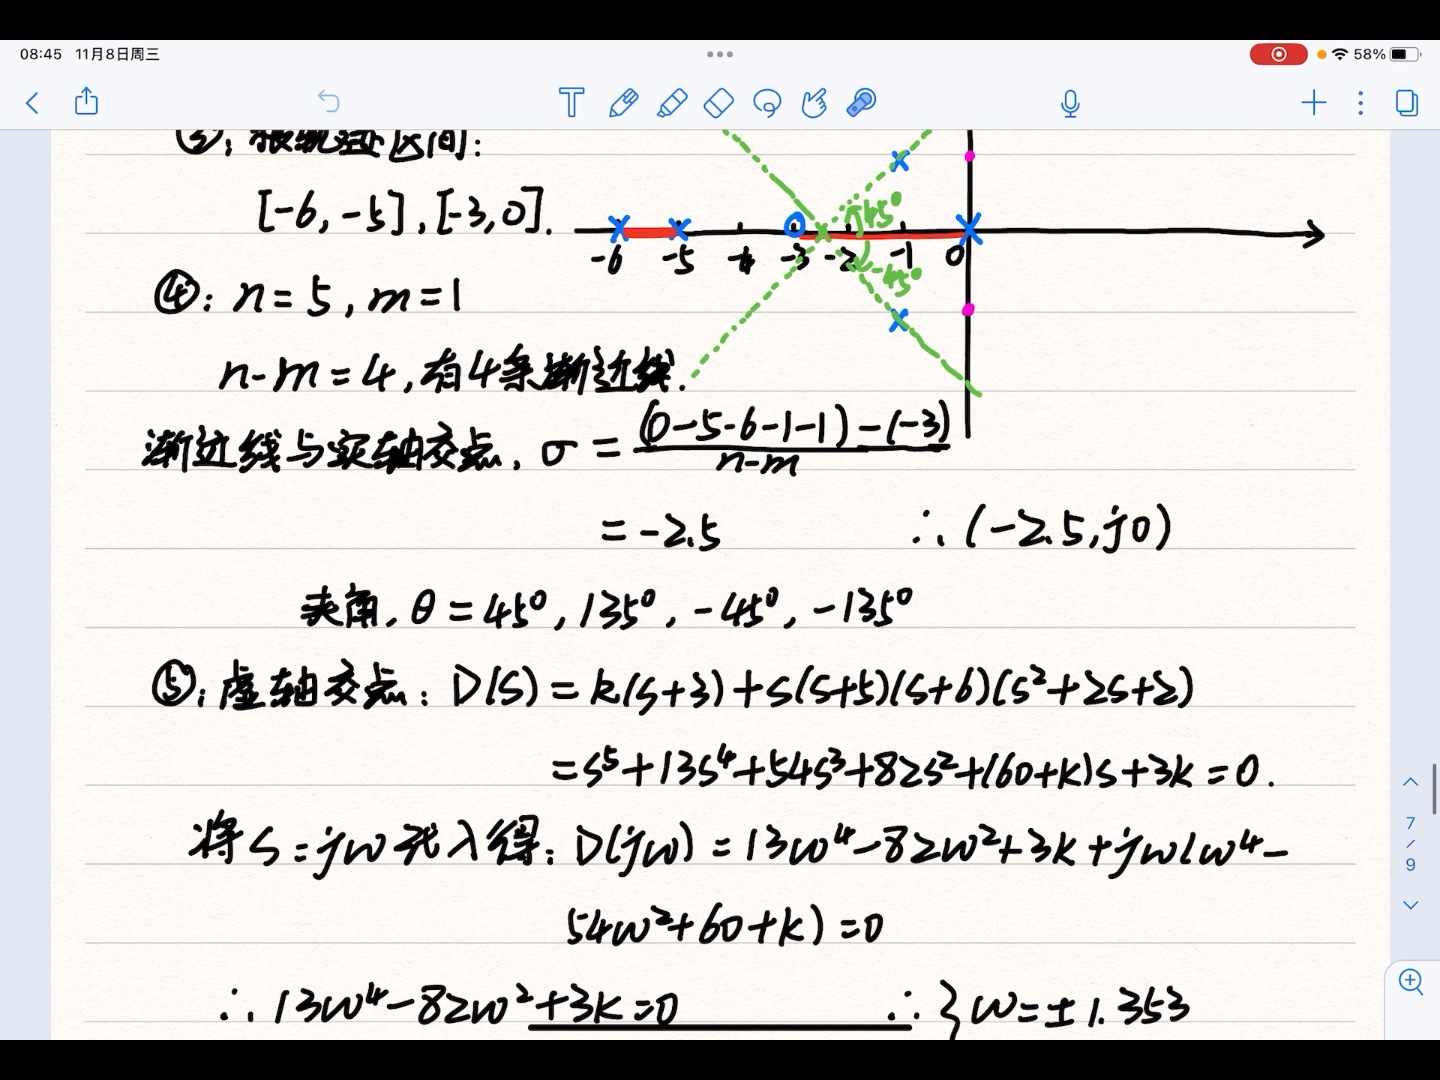 08:45 11月8日周三
58%
③: 根轨迹区间:
[-6, -5], [-3, 0].
-6 -5 -4 -3 -2 -1 0
45°
45°
④: n = 5, m = 1
n-m = 4, 有4条渐近线.
渐近线与实轴交点. σ = (0-5-6-1-1)-(-3) / n-m
= -2.5 ∴ (-2.5, j0)
夹角. θ = 45°, 135°, -45°, -135°
⑤: 虚轴交点: D(s) = k(s+3)+s(s+5)(s+6)(s²+2s+2)
=s⁵+13s⁴+54s³+82s²+(60+k)s+3k=0.
将s=jw代入得: D(jw) = 13w⁴-82w²+3k+jw(w⁴-
54w²+60+k)=0
∴ 13w⁴-82w²+3k=0 ∴ { w=±1.353
7
/
9